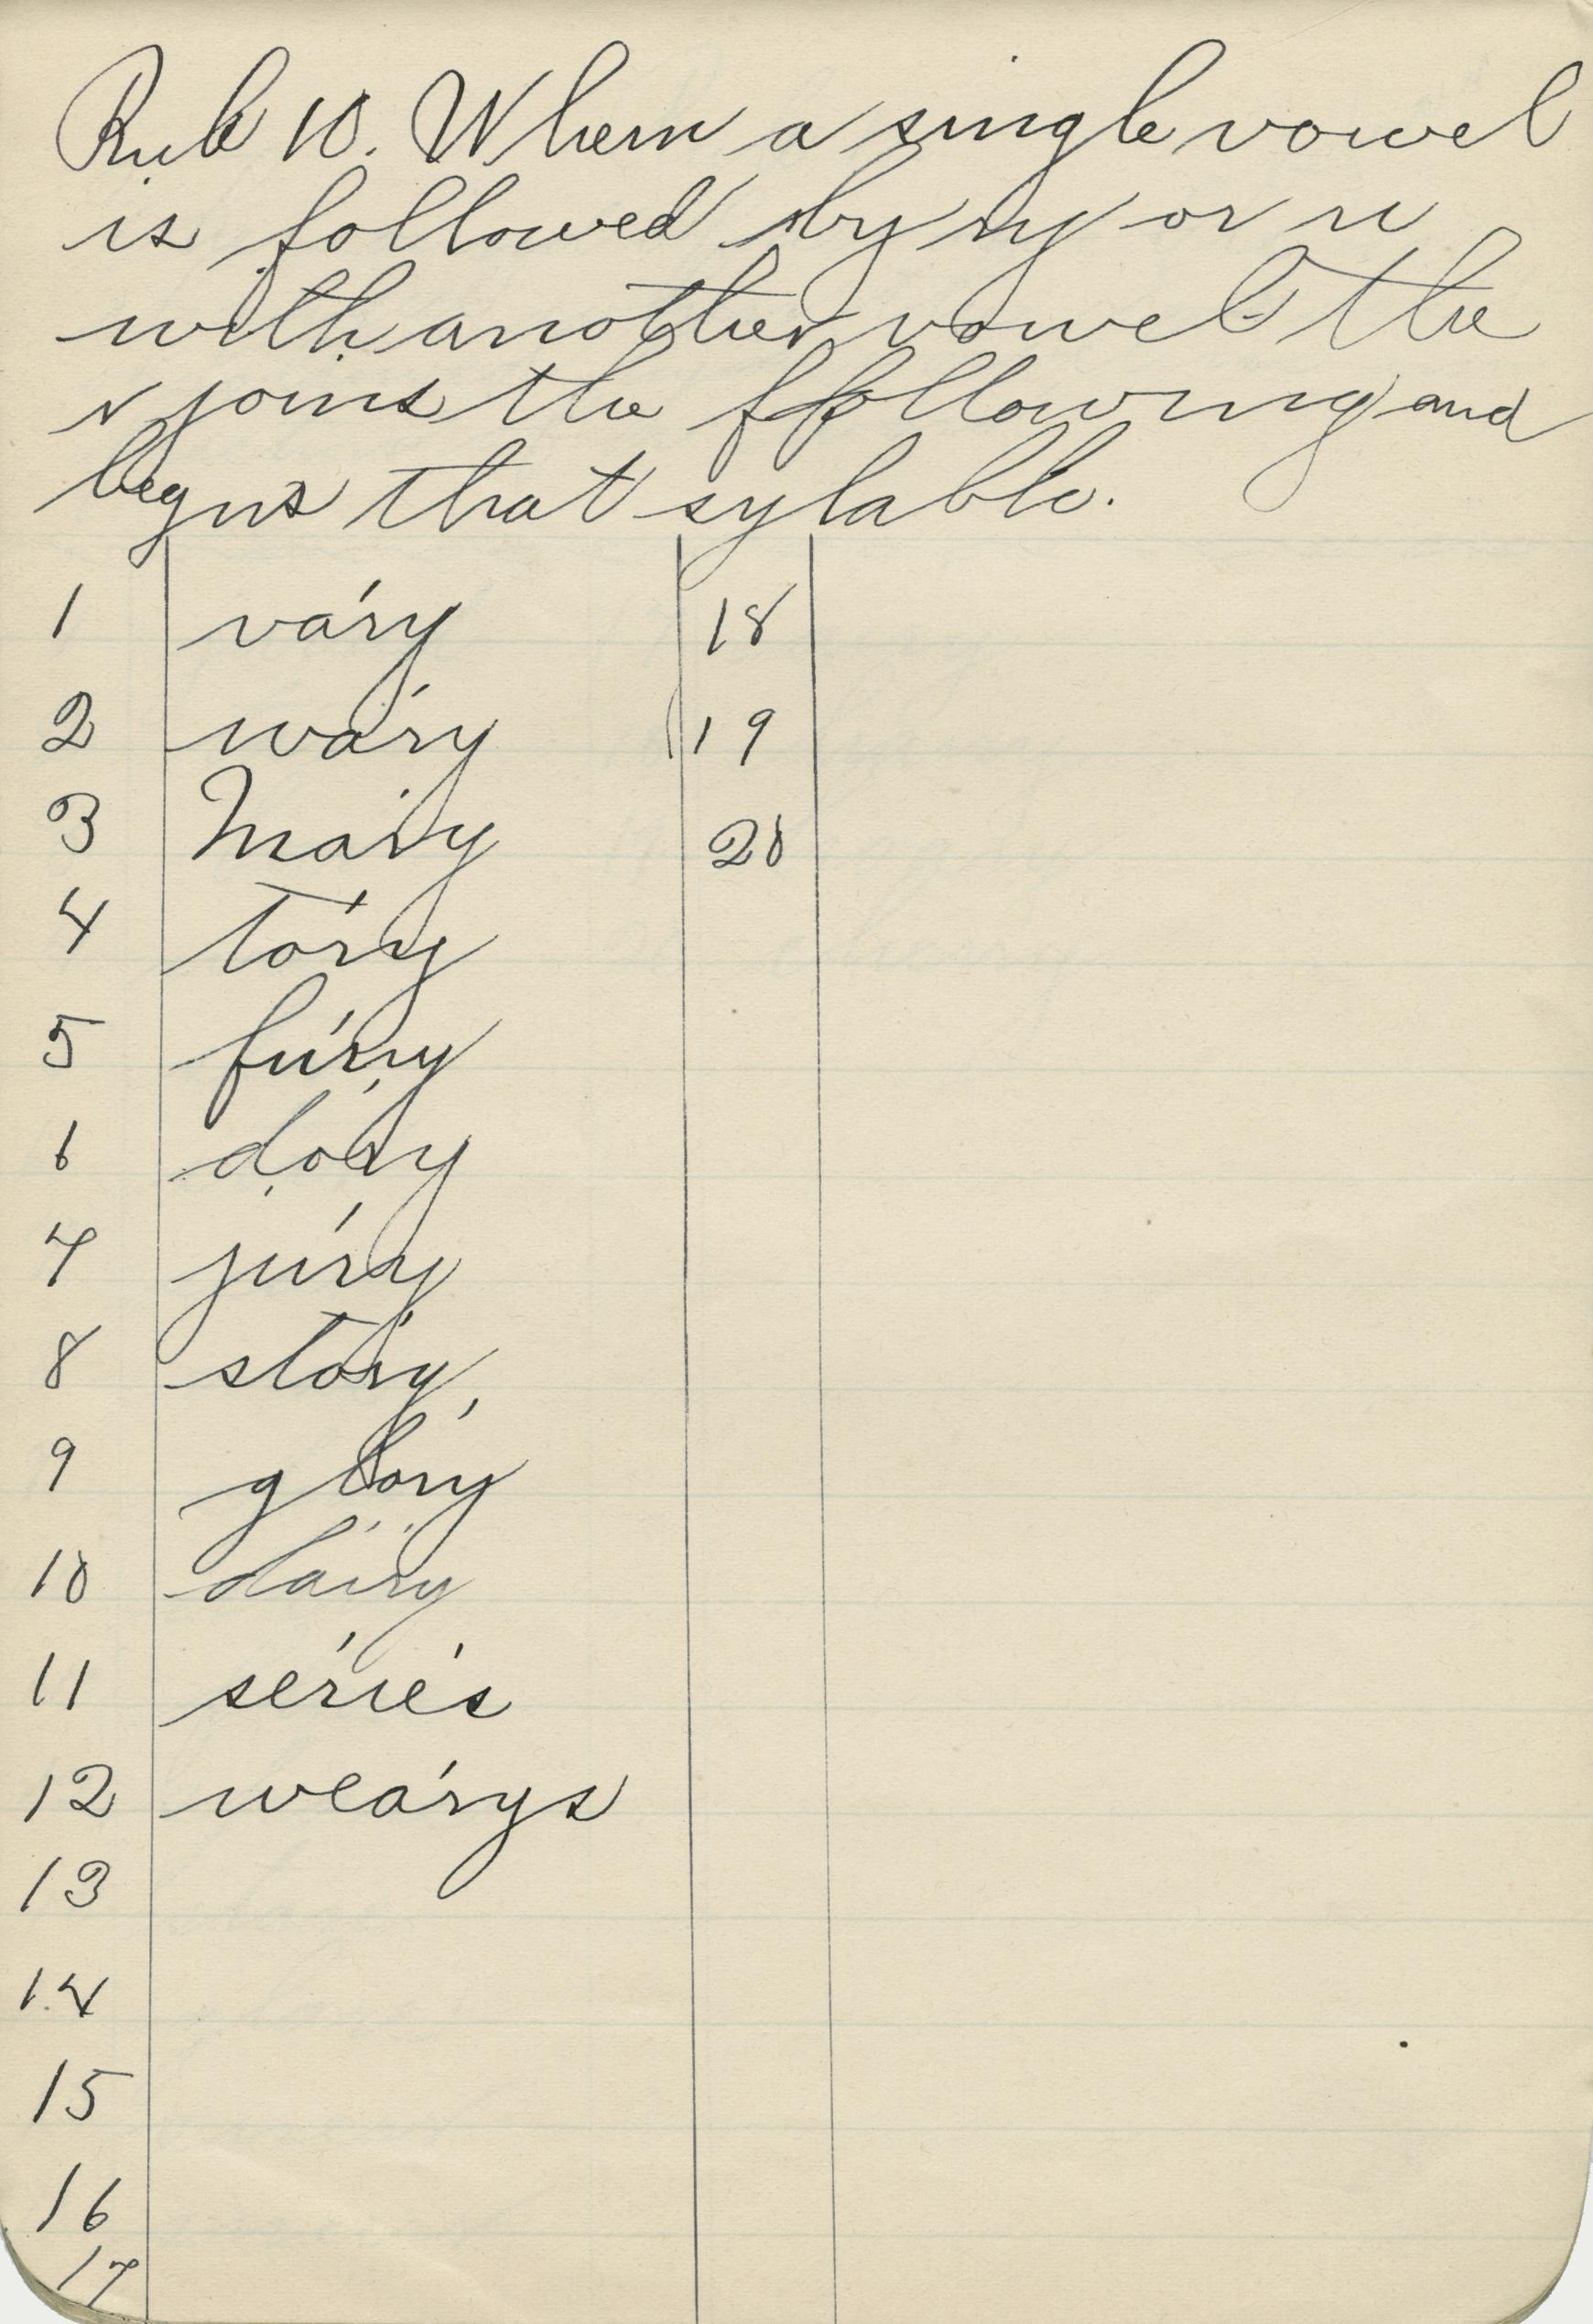 Rule 10. When a single vowel
is followed by ry or ri
with another vowel the
r joins the following and
begins that sylable.
1 váry 18
2 wáry 19
3 Máry 20
4 tóry
5 fúry
6 dóry
7 júry
8 stóry
9 glóry
10 dáiry
11 sériés
12 weárys
13
14
15
16
17